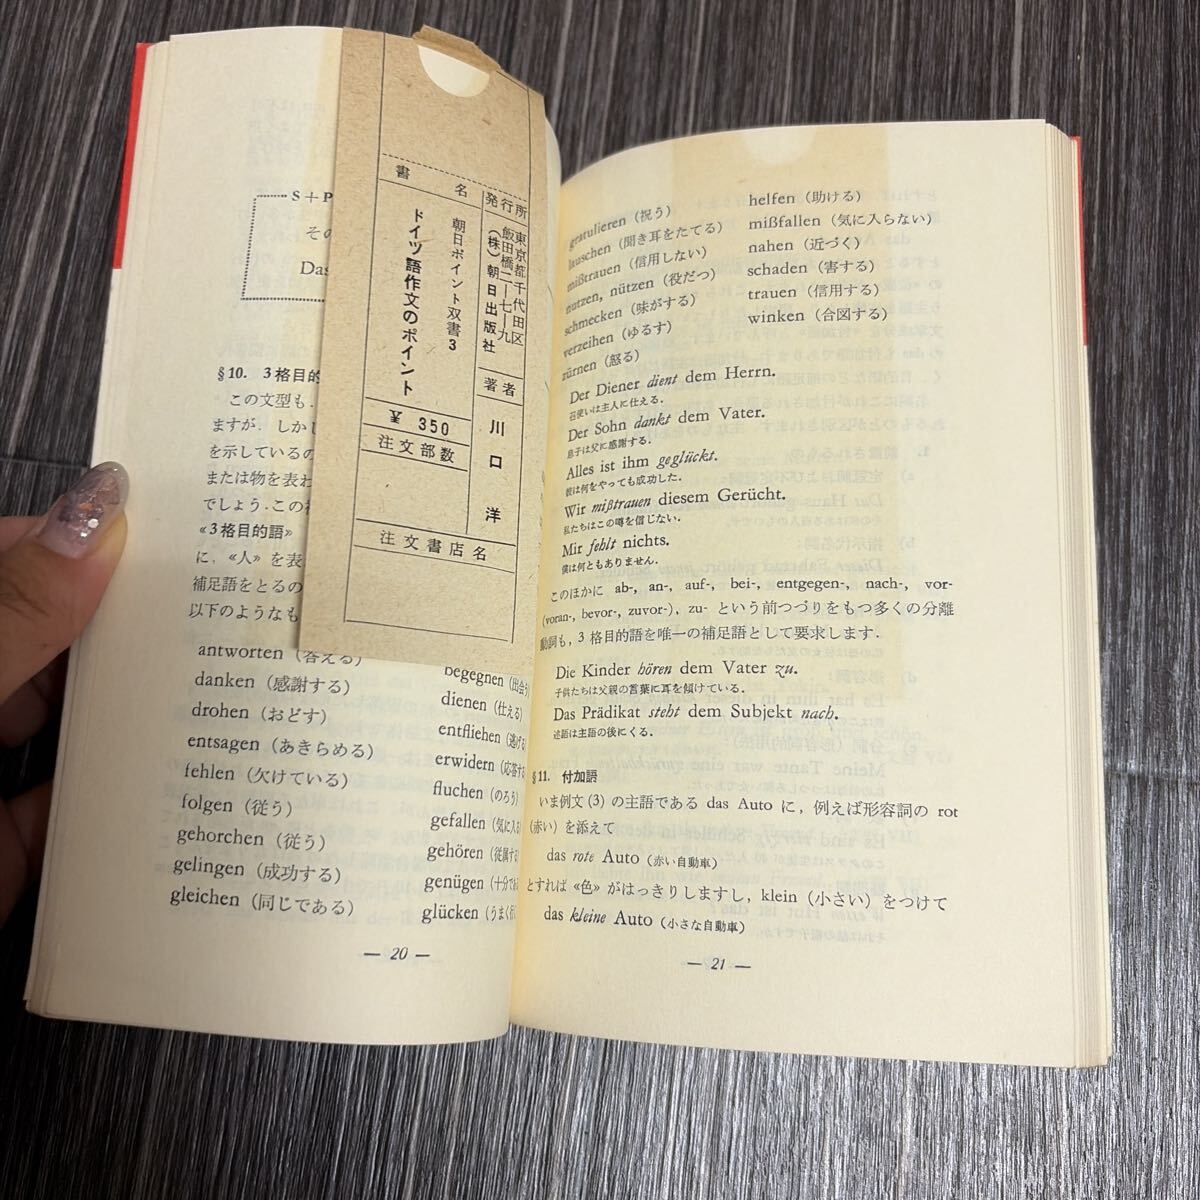 S＋P
その
Das
§10. 3格目的
この文型も,
ますが, しかし
を示しているの
または物を表わ
でしょう.この
≪3格目的語≫
に, ≪人≫ を表
補足語をとるの
以下のようなも
antworten (答える)
danken (感謝する)
drohen (おどす)
entsagen (あきらめる)
fehlen (欠けている)
folgen (従う)
gehorchen (従う)
gelingen (成功する)
gleichen (同じである)
begegnen (出会う
dienen (仕える)
entfliehen (逃げる
erwidern (応答する
fluchen (のろう)
gefallen (気に入る
gehören (従属する
genügen (十分で
glücken (うまく行
— 20 —
書名
朝日ポイント双書3
ドイツ語作文のポイント
¥ 350
注文部数
発行所
東京都千代田区
飯田橋二ー七ー九
(株)朝日出版社
著者
川口洋
注文書店名
gratulieren (祝う)
lauschen (聞き耳をたてる)
mißtrauen (信用しない)
nutzen, nützen (役だつ)
schmecken (味がする)
verzeihen (ゆるす)
zürnen (怒る)
helfen (助ける)
mißfallen (気に入らない)
nahen (近づく)
schaden (害する)
trauen (信用する)
winken (合図する)
Der Diener dient dem Herrn.
召使いは主人に仕える.
Der Sohn dankt dem Vater.
息子は父に感謝する.
Alles ist ihm geglückt.
彼は何をやっても成功した.
Wir mißtrauen diesem Gerücht.
私たちはこの噂を信じない.
Mir fehlt nichts.
僕は何ともありません.
このほかに ab-, an-, auf-, bei-, entgegen-, nach-, vor-
(voran-, bevor-, zuvor-), zu- という前つづりをもつ多くの分離
動詞も, 3格目的語を唯一の補足語として要求します.
Die Kinder hören dem Vater zu.
子供たちは父親の言葉に耳を傾けている.
Das Prädikat steht dem Subjekt nach.
述語は主語の後にくる.
§11. 付加語
いま例文(3)の主語である das Auto に, 例えば形容詞の rot
(赤い)を添えて
das rote Auto (赤い自動車)
とすれば ≪色≫ がはっきりしますし, klein (小さい) をつけて
das kleine Auto (小さな自動車)
— 21 —